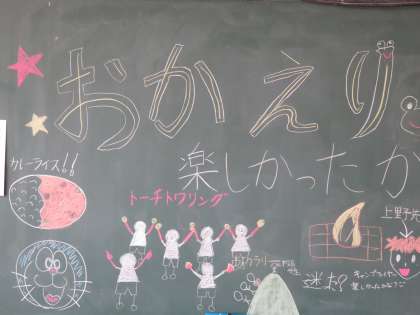 おかえり
楽しかったか
カレーライス!!
トーチトワリング
上野先
迷走?
キャンプファイヤー
楽しかったかな?